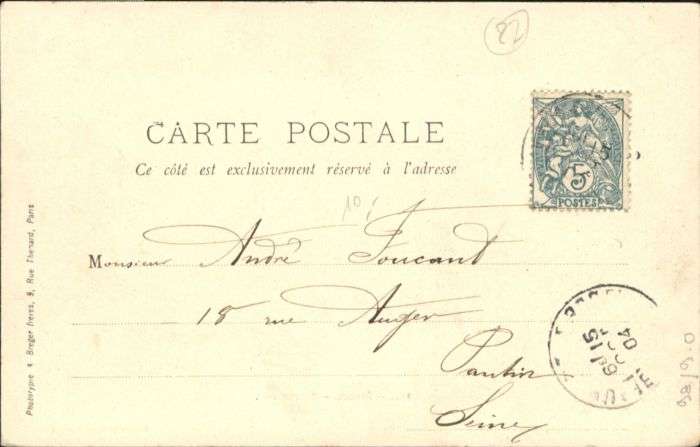 22
CARTE POSTALE
Ce côté est exclusivement réservé à l'adresse
5
POSTES
10
Monsieur André Foucant
18 rue Auger
Pantin
Seine
15
04
Phototypie Breger frères, 9, Rue Thenard, Paris